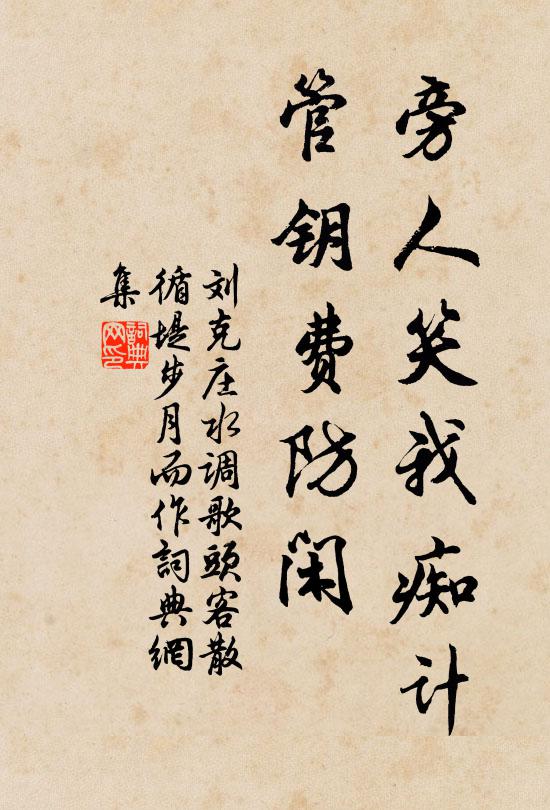 旁人笑我痴计
管钥费防闲
刘克庄水调歌頭客散
循堤步月而作詞典網
集
詞典
网印